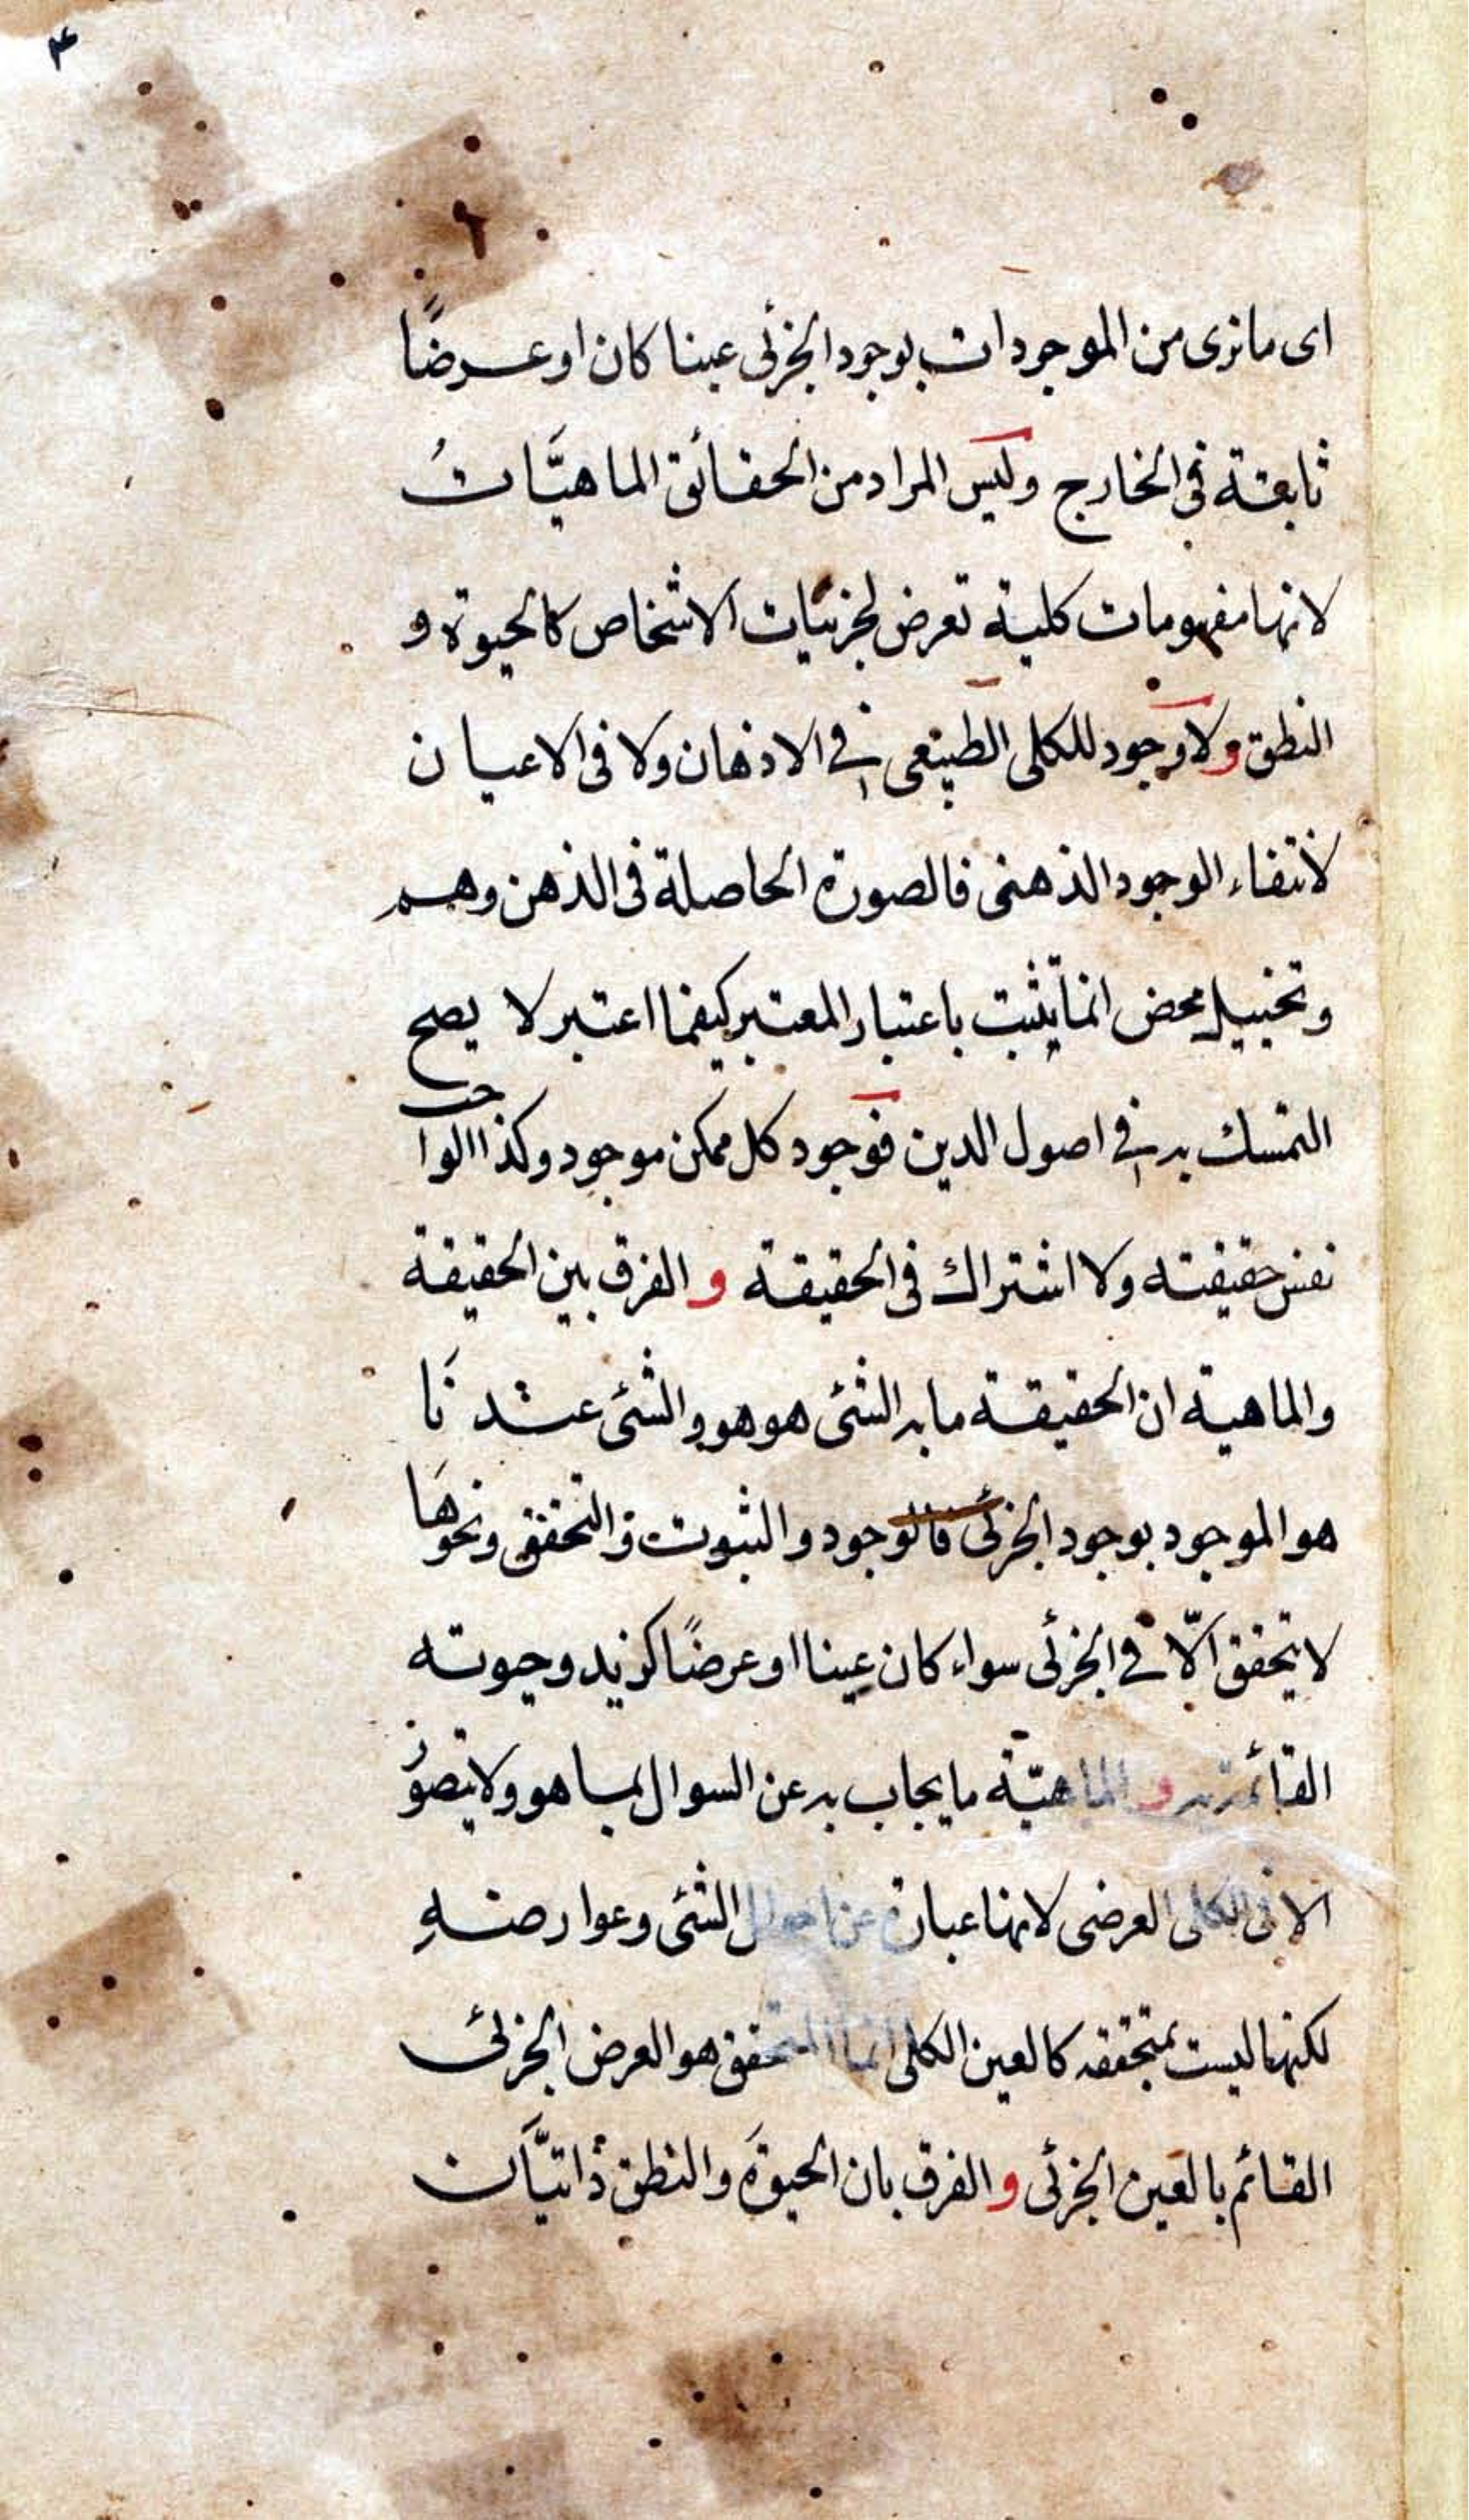 ۴
اى ما نرى من الموجودات بوجود الجزئى عينا كان او عرضًا
ثابتة فى الخارج وليس المراد من الحقائق الماهيّاتُ
لانها مفهومات كلية تعرض لجزئيات الاشخاص كالحيوة و
النطق ولا وجود للكلى الطبيعى فى الاذهان ولا فى الاعيان
لانتفاء الوجود الذهنى فالصورة الحاصلة فى الذهن وهم
وتخييل محض انما يثبت باعتبار المعتبر كيفما اعتبر لا يصح
التمسك به فى اصول الدين فوجود كل ممكن موجود وكذا الواجب
نفس حقيقته ولا اشتراك فى الحقيقة و الفرق بين الحقيقة
والماهية ان الحقيقة ما به الشئ هو هو والشئ عندنا
هو الموجود بوجود الجزئى فالوجود والثبوت والتحقق ونحوها
لا يتحقق الّا فى الجزئى سواء كان عينا او عرضًا كزيد وحيوته
القائمة به و الماهيّة ما يجاب به عن السوال بما هو ولا يتصور
الا فى الكلى العرضى لانها عبارة عن احوال الشئ وعوارضهِ
لكنها ليست بمتحققه كالعين الكلى انما المتحقق هو العرض الجزئى
القائم بالعين الجزئى و الفرق بان الحيوةَ والنطق ذاتيّان